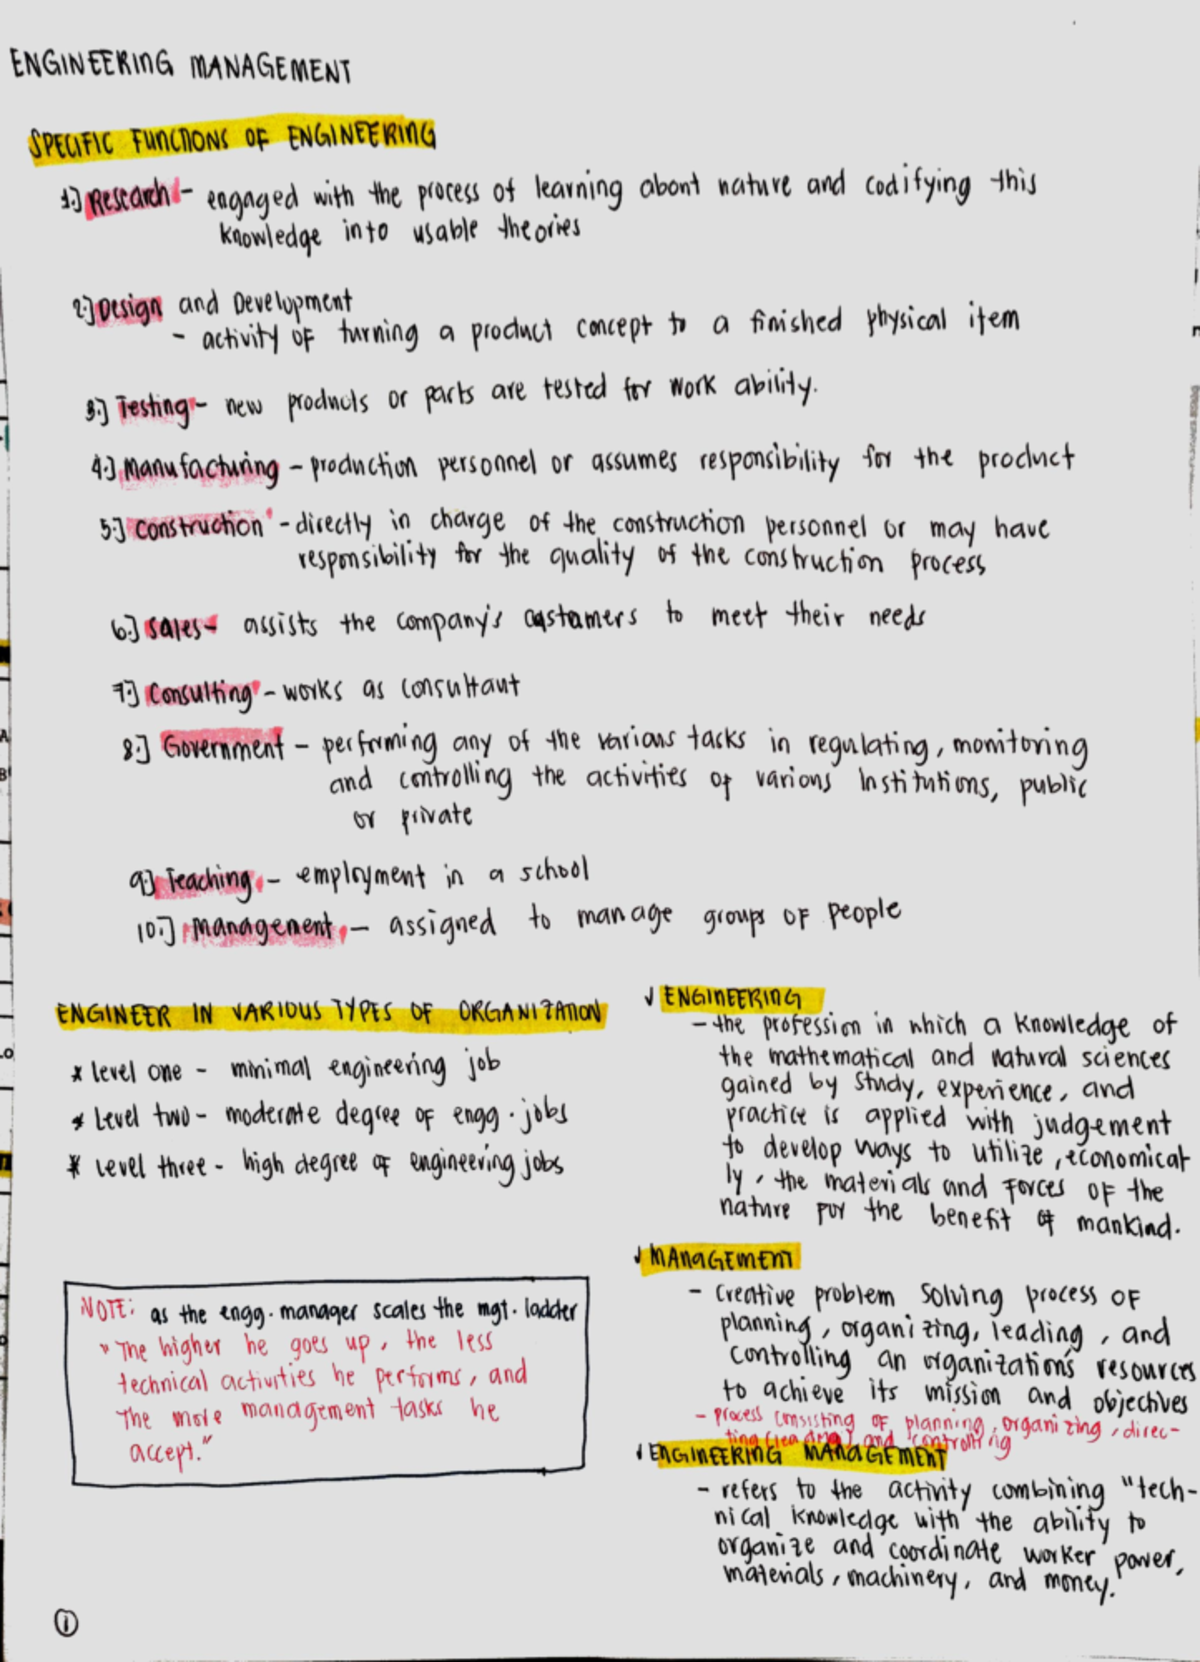 ENGINEERING MANAGEMENT
SPECIFIC FUNCTIONS OF ENGINEERING
1.) Research - engaged with the process of learning about nature and codifying this
knowledge into usable theories
2.) Design and Development
- activity of turning a product concept to a finished physical item
3.) Testing - new products or parts are tested for work ability.
4.) Manufacturing - production personnel or assumes responsibility for the product
5.) Construction - directly in charge of the construction personnel or may have
responsibility for the quality of the construction process
6.) Sales - assists the company's customers to meet their needs
7.) Consulting - works as consultant
8.) Government - performing any of the various tasks in regulating, monitoring
and controlling the activities of various Institutions, public
or private
9.) Teaching - employment in a school
10.) Management - assigned to manage groups of people
ENGINEER IN VARIOUS TYPES OF ORGANIZATION
* level one - minimal engineering job
* Level two - moderate degree of engg. jobs
* Level three - high degree of engineering jobs
NOTE: as the engg. manager scales the mgt. ladder
"The higher he goes up, the less
technical activities he performs, and
the more management tasks he
accept."
✓ ENGINEERING
- the profession in which a knowledge of
the mathematical and natural sciences
gained by study, experience, and
practice is applied with judgement
to develop ways to utilize, economical
ly, the materials and forces of the
nature for the benefit of mankind.
✓ MANAGEMENT
- Creative problem solving process of
planning, organizing, leading, and
controlling an organization's resources
to achieve its mission and objectives
- process consisting of planning, organizing, direc-
ting (leading) and controlling
✓ ENGINEERING MANAGEMENT
- refers to the activity combining "tech-
nical knowledge with the ability to
organize and coordinate worker power,
materials, machinery, and money.
1